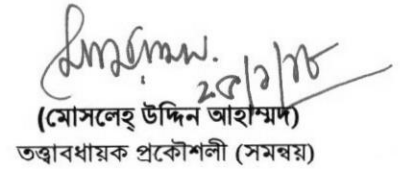 ২৫/১/১৮
(মোসলেহ্ উদ্দিন আহাম্মদ)
তত্ত্বাবধায়ক প্রকৌশলী (সমন্বয়)